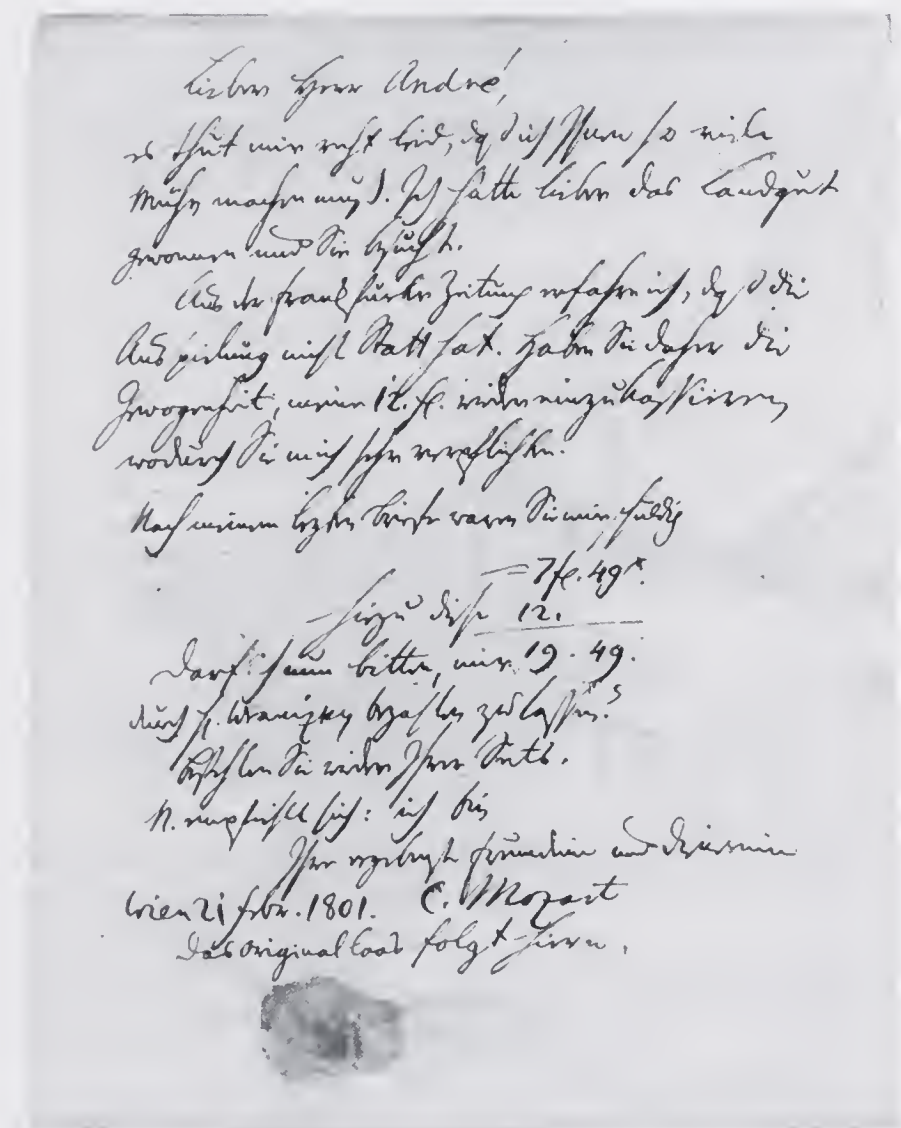 Lieber Herr André,
es thut mir recht leid, daß ich Ihnen so viele
Mühe machen muß. Ich hätte lieber das Landgut
gewonnen und Sie besucht.
Aus der Frankfurter Zeitung erfahre ich, daß die
Ausspielung nicht Statt hat. Haben Sie daher die
Gewogenheit, meine 12. fl. wieder einzukassieren,
wodurch Sie mich sehr verpflichten.
Nach meinem lezten Briefe waren Sie mir schuldig
7 fl. 49 x.
hiezu diese 12.
Darf ich nun bitten, mir 19 . 49.
durch H. Wranizky bezahlen zu lassen?
Befehlen Sie wieder Ihrer Seits.
N. empfiehlt sich: ich bin
Ihre ergebenste Freundin und Dienerin
Wien 21 febr. 1801. C. Mozart
Das Original Loos folgt hierin.